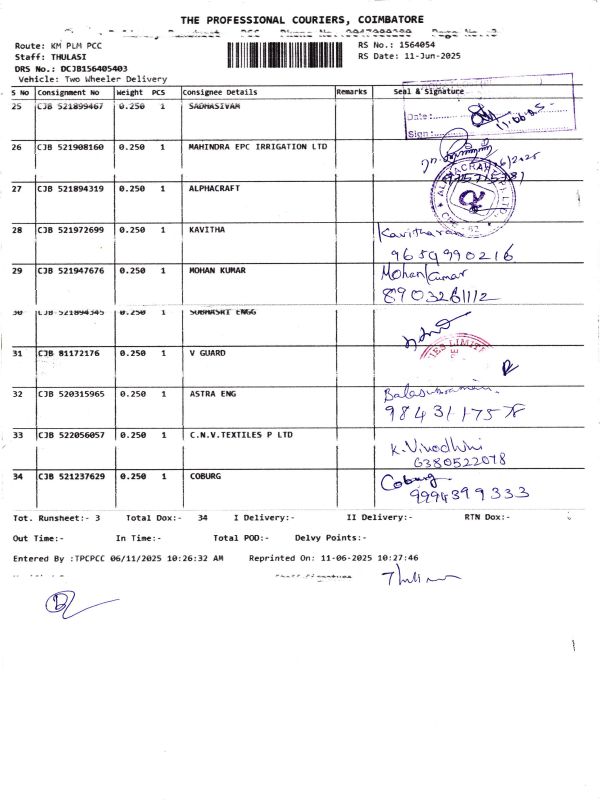 THE PROFESSIONAL COURIERS, COIMBATORE
Route: KM PLM PCC
RS No.: 1564054
Staff: THULASI
RS Date: 11-Jun-2025
DRS No.: DCJB156405403
Vehicle: Two Wheeler Delivery
S No Consignment No Weight PCS Consignee Details Remarks Seal & Signature
25 CJB 521899467 0.250 1 SADHASIVAM
Date:
Sign:
26 CJB 521908160 0.250 1 MAHINDRA EPC IRRIGATION LTD
27 CJB 521894319 0.250 1 ALPHACRAFT
28 CJB 521972699 0.250 1 KAVITHA
9659990216
29 CJB 521947676 0.250 1 MOHAN KUMAR Mohan Kumar
8903261112
30 CJB 521894345 0.250 1 SUBHASRI ENGG
31 CJB 81172176 0.250 1 V GUARD
32 CJB 520315965 0.250 1 ASTRA ENG
33 CJB 522056057 0.250 1 C.N.V.TEXTILES P LTD K. Vinodhini
6380522078
34 CJB 521237629 0.250 1 COBURG Coburg
9994399333
Tot. Runsheet:- 3 Total Dox:- 34 I Delivery:- II Delivery:- RTN Dox:-
Out Time:- In Time:- Total POD:- Delvy Points:-
Entered By :TPCPCC 06/11/2025 10:26:32 AM Reprinted On: 11-06-2025 10:27:46
Staff Signature